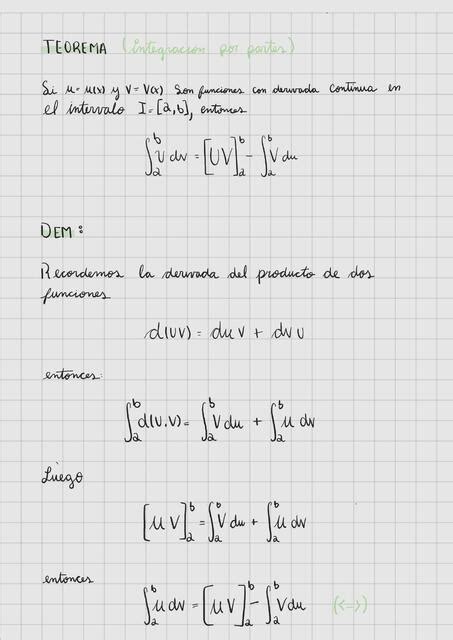 TEOREMA (integración por partes)
Si u = u(x) y V = V(x) son funciones con derivada continua en
el intervalo I = [a,b], entonces
∫ₐᵇ U dv = [UV]ₐᵇ - ∫ₐᵇ V du
DEM:
Recordemos la derivada del producto de dos
funciones
d(UV) = du V + dv U
entonces:
∫ₐᵇ d(U.V) = ∫ₐᵇ V du + ∫ₐᵇ u dv
Luego
[u V]ₐᵇ = ∫ₐᵇ V du + ∫ₐᵇ u dv
entonces
∫ₐᵇ u dv = [u V]ₐᵇ - ∫ₐᵇ V du (<_>)